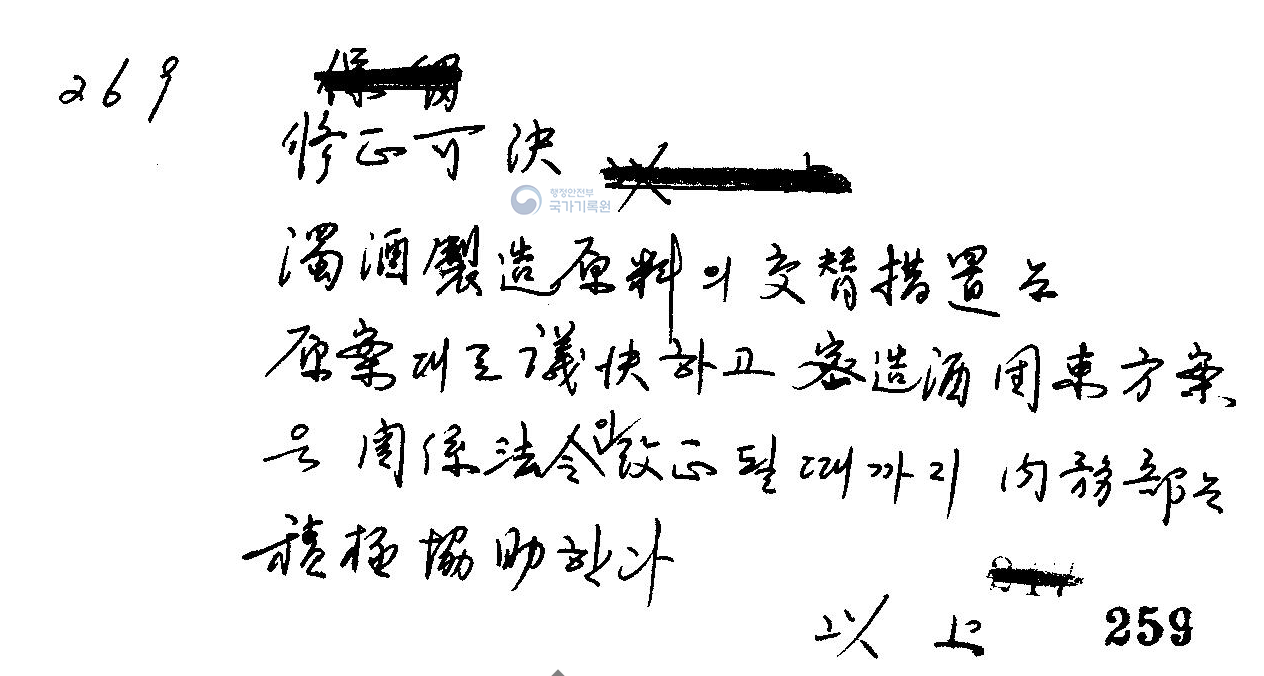 269
保留
修正可決 以上
행정안전부
국가기록원
濁酒製造原料의 交替措置는
原案대로 議決하고 密造酒団束方案
은 関係法令이 改正될 때까지 内務部는
積極協助한다
以上
259